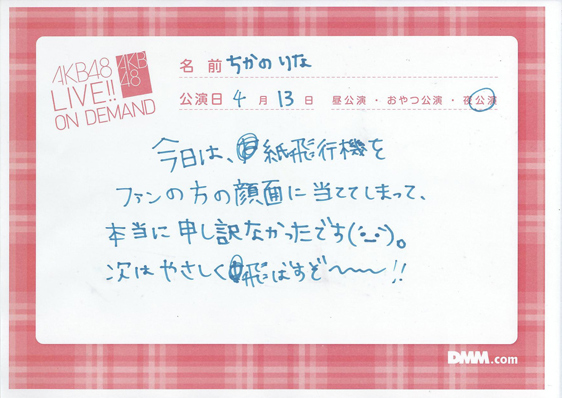 AKB48
LIVE!!
ON DEMAND
AKB
48
名前 ちかの りな
公演日 4 月 13 日 昼公演・おやつ公演・夜公演
今日は、紙飛行機を
ファンの方の顔面に当ててしまって、
本当に申し訳なかったです(´·_·`)。
次はやさしく飛ばすぞ〜〜〜!!
DMM.com